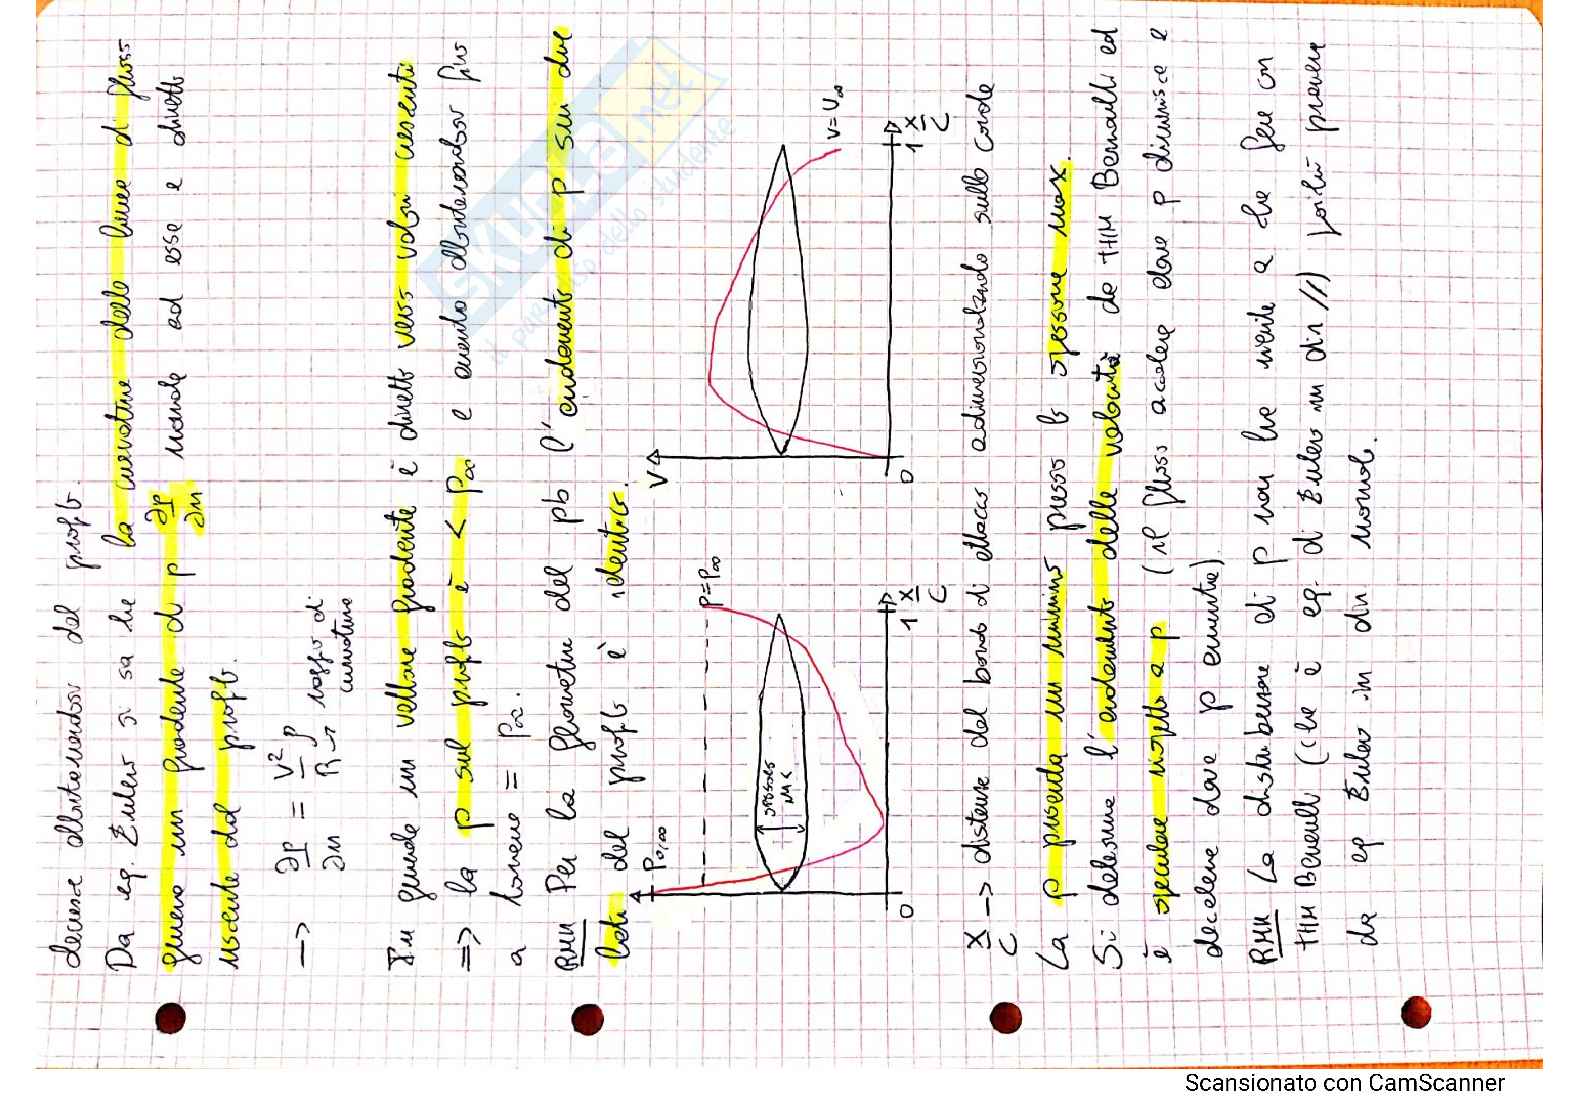 decresce allontanandosi dal profilo.
Da eq. Eulero si sa che la curvatura delle linee di flusso
genera un gradiente di p ∂p/∂n normale ad esse e diretto
uscente dal profilo.
—> ∂p/∂n = V²/R ρ → raggio di curvatura
Tu guarda un vettore gradiente è diretto verso valori crescenti
=> la p sul profilo è < p∞ e aumenta allontanandosi fino
a tornare = p∞.
RMK Per la geometria del pb l'andamento di p sui due
lati del profilo è identico.
p0,∞
p=p∞
spessore
MAX
0
1
x/c
V
V=V∞
0
1
x/c
x/c —> distanza dal bordo di attacco adimensionalizzando sulla corda
La p presenta un minimo presso lo spessore max.
Si determina l'andamento delle velocità da THM Bernoulli ed
è speculare rispetto a p (il flusso accelera dove p diminuisce e
decelera dove p aumenta).
RMK La distribuzione di p non ha niente a che fare con
THM Bernoulli (che è eq. di Eulero in dir //) poiché proviene
da eq Eulero in dir normale.
SKUOLA.net
il paradiso dello studente
Scansionato con CamScanner